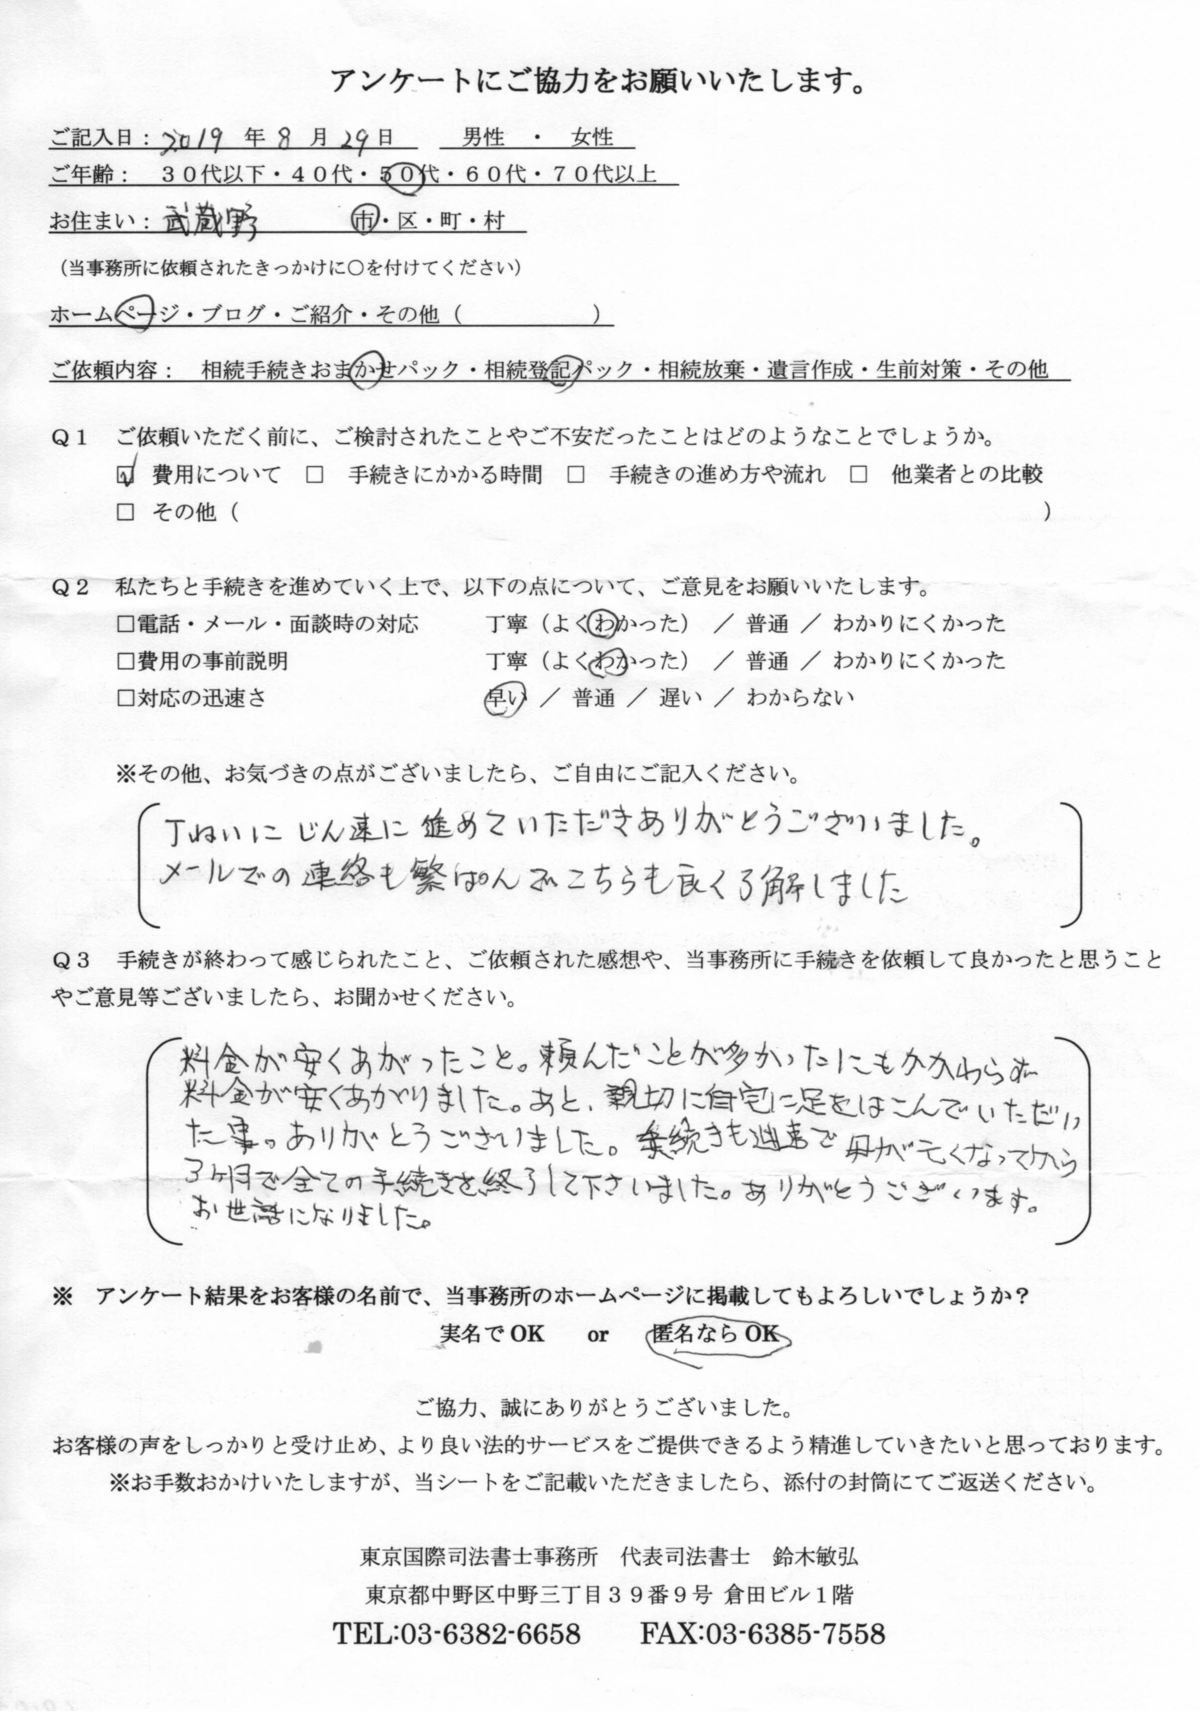 アンケートにご協力をお願いいたします。
ご記入日：2019 年 8 月 29日　男性　・　女性
ご年齢：　３０代以下・４０代・５０代・６０代・７０代以上
お住まい：武蔵野　市・区・町・村
（当事務所に依頼されたきっかけに○を付けてください）
ホームページ・ブログ・ご紹介・その他（　　　　　　）
ご依頼内容：　相続手続きおまかせパック・相続登記パック・相続放棄・遺言作成・生前対策・その他
Ｑ１　ご依頼いただく前に、ご検討されたことやご不安だったことはどのようなことでしょうか。
☑　費用について　□　手続きにかかる時間　□　手続きの進め方や流れ　□　他業者との比較
□　その他（　　　　　　）
Ｑ２　私たちと手続きを進めていく上で、以下の点について、ご意見をお願いいたします。
□電話・メール・面談時の対応　丁寧（よくわかった）　／　普通　／　わかりにくかった
□費用の事前説明　丁寧（よくわかった）　／　普通　／　わかりにくかった
□対応の迅速さ　早い　／　普通　／　遅い　／　わからない
※その他、お気づきの点がございましたら、ご自由にご記入ください。
丁ねいに じん速に 進めていただきありがとうございました。
メールでの 連絡も繁ぱんでこちらも良く了解しました
Ｑ３　手続きが終わって感じられたこと、ご依頼された感想や、当事務所に手続きを依頼して良かったと思うこと
やご意見等ございましたら、お聞かせください。
料金が安くあがったこと。頼んだことが多かったにもかかわらず
料金が安くあがりました。あと、親切に自宅に足をはこんでいただい
た事。ありがとうございました。手続きも迅速で 母が亡くなってから
3ヶ月で全ての手続きを終了して下さいました。ありがとうございます。
お世話になりました。
※　アンケート結果をお客様の名前で、当事務所のホームページに掲載してもよろしいでしょうか？
実名でOK　or　匿名ならOK
ご協力、誠にありがとうございました。
お客様の声をしっかりと受け止め、より良い法的サービスをご提供できるよう精進していきたいと思っております。
※お手数おかけいたしますが、当シートをご記載いただきましたら、添付の封筒にてご返送ください。
東京国際司法書士事務所　代表司法書士　鈴木敏弘
東京都中野区中野三丁目３９番９号 倉田ビル１階
TEL:03-6382-6658　FAX:03-6385-7558